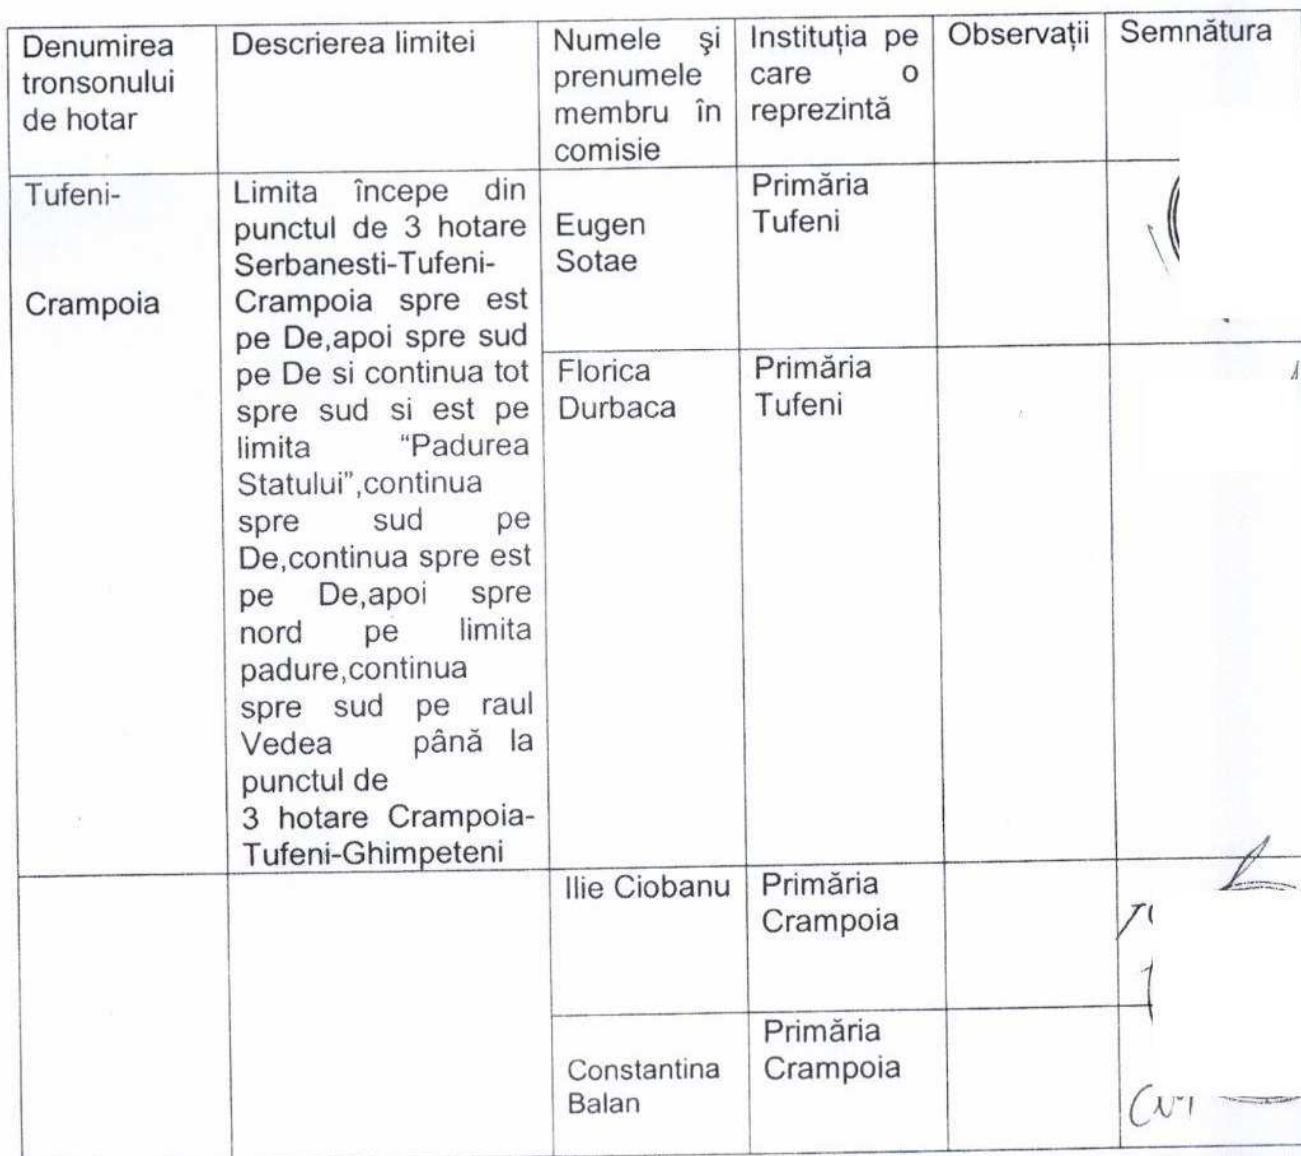 Denumirea
tronsonului
de hotar
Descrierea limitei
Numele și
prenumele
membru în
comisie
Instituția pe
care o
reprezintă
Observații
Semnătura
Tufeni-
Crampoia
Limita începe din
punctul de 3 hotare
Serbanesti-Tufeni-
Crampoia spre est
pe De,apoi spre sud
pe De si continua tot
spre sud si est pe
limita “Padurea
Statului”,continua
spre sud pe
De,continua spre est
pe De,apoi spre
nord pe limita
padure,continua
spre sud pe raul
Vedea până la
punctul de
3 hotare Crampoia-
Tufeni-Ghimpeteni
Eugen
Sotae
Primăria
Tufeni
Florica
Durbaca
Primăria
Tufeni
Ilie Ciobanu
Primăria
Crampoia
Constantina
Balan
Primăria
Crampoia